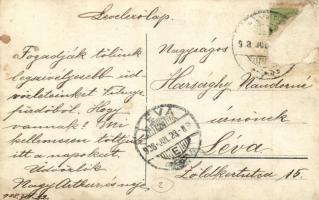 Levelezőlap.
Fogadják tőlünk
legszívélyesebb üd-
vözleteinket
fürdőből. Hogy
vannak? Mi
kellemesen töltjük
itt a napokat.
Üdvözlik
Nagy Arthur és neje
Nagyságos
Harsághy Nándorné
úrnőnek
Léva
Zöldkert utca 15.
LÉVA